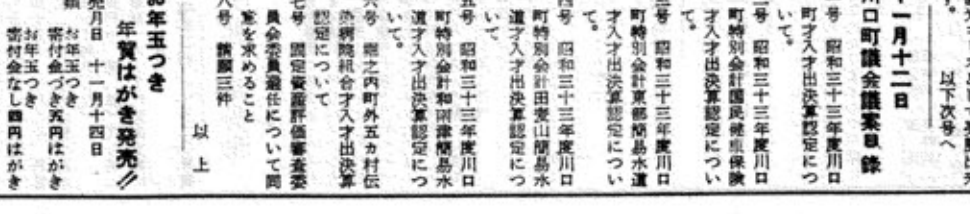 以下次号へ
十一月十二日
川口町議会議案目録
号 昭和三十三年度川口
町才入才出決算認定につ
いて。
号 昭和三十三年度川口
町特別会計国民健康保険
才入才出決算認定につい
て。
号 昭和三十三年度川口
町特別会計東部簡易水道
才入才出決算認定につい
て。
四号 昭和三十三年度川口
町特別会計田麦山簡易水
道才入才出決算認定につ
いて。
五号 昭和三十三年度川口
町特別会計和南津簡易水
道才入才出決算認定につ
いて。
六号 堀之内町外五カ村伝
染病院組合才入才出決算
認定について
七号 固定資産評価審査委
員会委員選任について同
意を求めること
八号 請願三件
以上
お年玉つき
年賀はがき発売!!
発売月日 十一月十四日
お年玉つき
寄付金づき五円はがき
お年玉つき
寄付金なし四円はがき